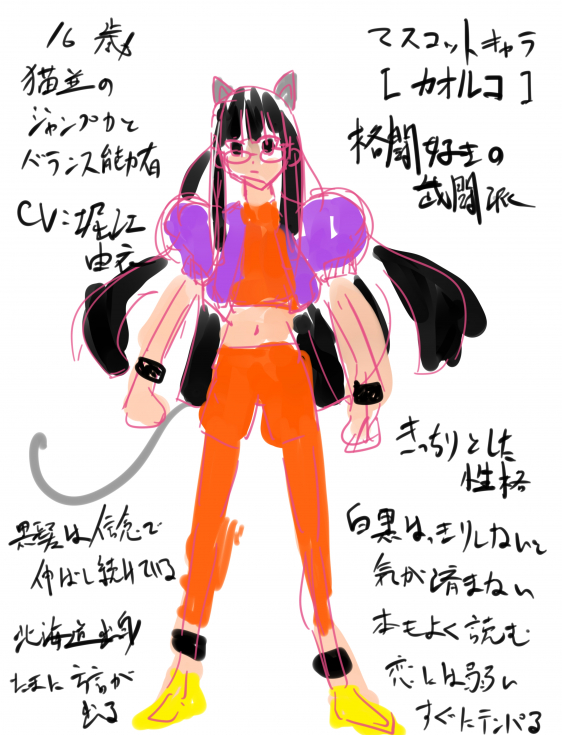 16歳
猫並の
ジャンプ力と
バランス能力者
CV:堀江
由衣
マスコットキャラ
[カオルコ]
格闘好きの
武闘派
きっちりとした
性格
白黒はっきりしないと
気が済まない
本もよく読む
恋には弱い
すぐにテンパる
黒髪は信念で
伸ばし続けている
北海道出身
たまに方言が
出る